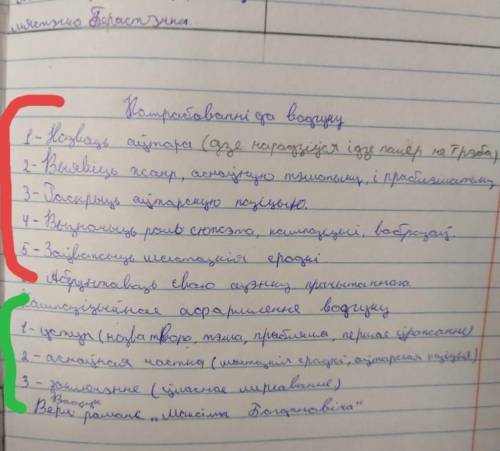 мястэчко Берастэчка.
Патрабаванні да водгуку
1 - Назваць аўтара (дзе нарадзіўся і дзе памёр не трэба)
2 - Выявіць жанр, асноўную тэматыку, і праблематыку
3 - Раскрыць аўтарскую пазіцыю.
4 - Вызначыць роль сюжэта, кампазіцыі, вобразаў.
5 - Заўважыць мастацкія сродкі
Абгрунтаваць сваю ацэнку прачытанага
Кампазіцыйнае афармленне водгуку
1 - уступ (назва твора, тэма, праблема, першае ўражанне)
2 - асноўная частка (мастацкія сродкі, аўтарская пазіцыя)
3 - заключэнне (уласнае меркаванне)
Водгук
Верш раманс "Максіма Богдановіча"